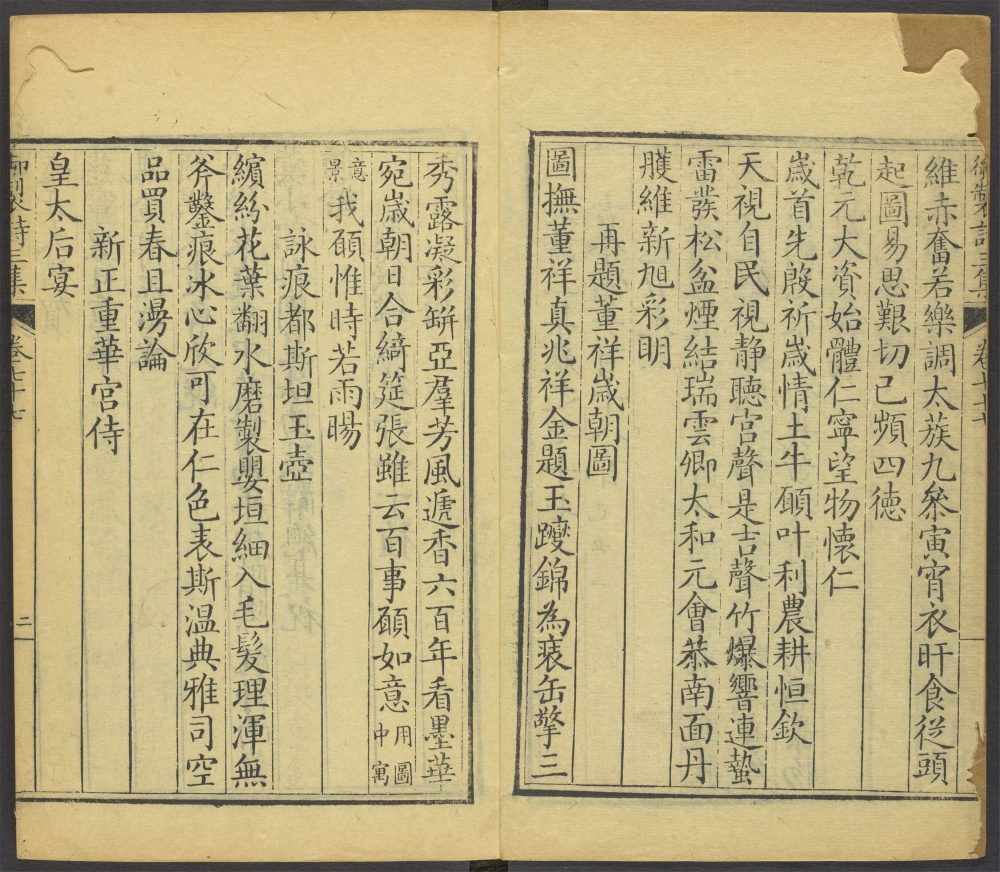 御製詩三集
卷七十七
維赤奮若樂調太蔟九叅寅宵衣旰食從頭
起圖易思艱切己頻四德
乾元大資始體仁寧望物懷仁
歲首先殷祈歲情土牛願叶利農耕恒欽
天視自民視静聽宫聲是吉聲竹爆響連蟄
雷發松盆煙結瑞雲卿太和元會恭南面丹
雘維新旭彩明
再題董祥歲朝圖
圖撫董祥真兆祥金題玉躞錦為褱缶擎三
秀露凝彩缾亞羣芳風遞香六百年看墨華
宛歲朝日合綺筵張雖云百事願如意用圖中寓
意景我願惟時若雨暘
詠痕都斯坦玉壺
繽紛花葉翻水磨製嬰垣細入毛髮理渾無
斧鑿痕冰心欣可在仁色表斯温典雅司空
品買春且漫論
新正重華宫侍
皇太后宴
御製詩三集
卷七十七
二